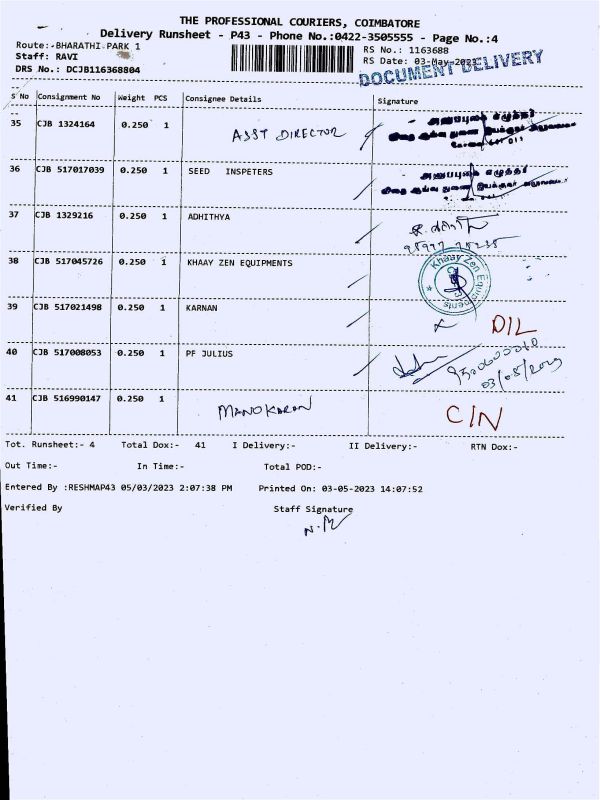 THE PROFESSIONAL COURIERS, COIMBATORE
Delivery Runsheet - P43 - Phone No.:0422-3505555 - Page No.:4
Route:-BHARATHI PARK 1
RS No.: 1163688
Staff: RAVI
RS Date: 03-May-2023
DRS No.: DCJB116368804
DOCUMENT DELIVERY
S No Consignment No Weight PCS Consignee Details Signature
35 CJB 1324164 0.250 1 ASST DIRECTOR
அனுப்புகை எழுத்தர்
36 CJB 517017039 0.250 1 SEED INSPETERS
அனுப்புகை எழுத்தர்
37 CJB 1329216 0.250 1 ADHITHYA
38 CJB 517045726 0.250 1 KHAAY ZEN EQUIPMENTS
Khaay Zen Equipments
39 CJB 517021498 0.250 1 KARNAN
DIL
40 CJB 517008053 0.250 1 PF JULIUS
03/05/2023
41 CJB 516990147 0.250 1 MANOKARAN C/N
Tot. Runsheet:- 4 Total Dox:- 41 I Delivery:- II Delivery:- RTN Dox:-
Out Time:- In Time:- Total POD:-
Entered By :RESHMAP43 05/03/2023 2:07:38 PM Printed On: 03-05-2023 14:07:52
Verified By Staff Signature